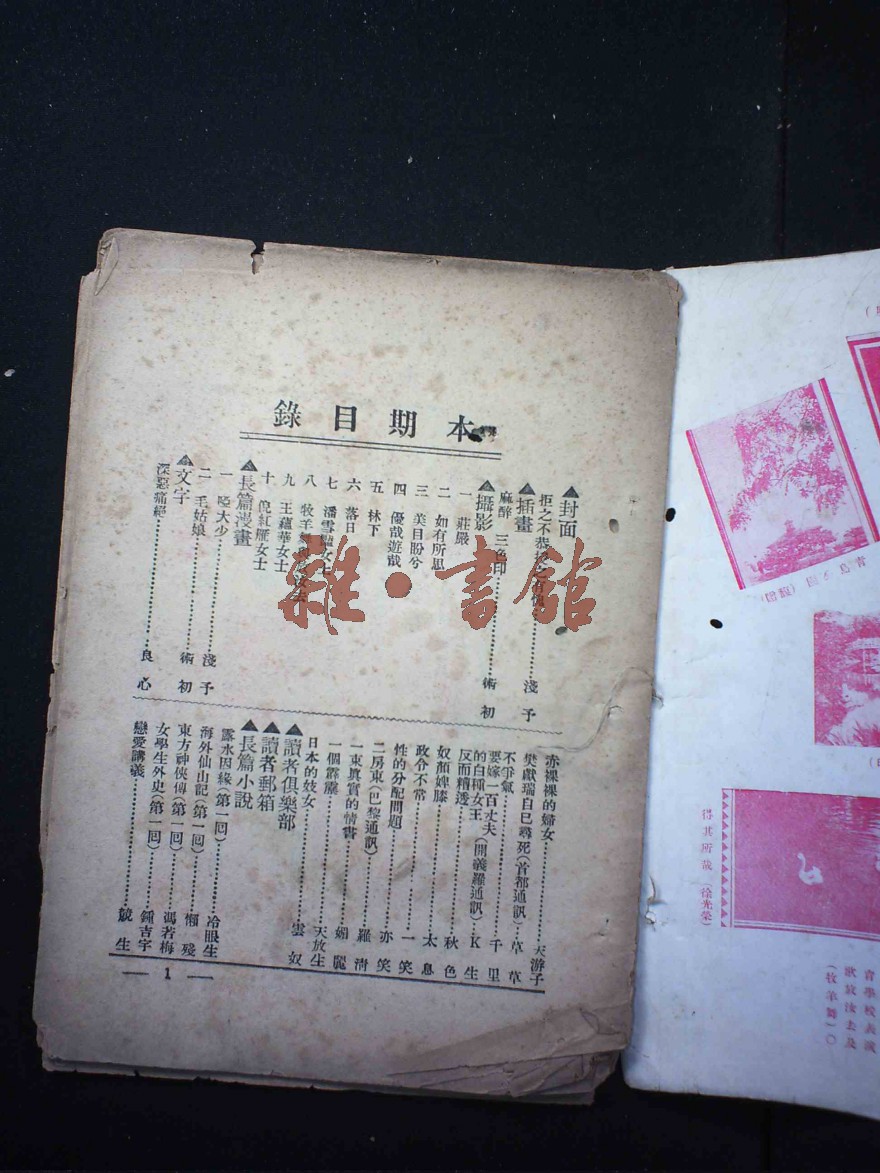 本期目錄
▲封面
拒之不恭受之有愧………淺予
▲插畫
麻醉 三色印………術初
▲攝影
一 莊嚴
二 如有所思
三 美目盼兮
四 優哉遊哉
五 林下
六 落日
七 潘雪艷女士
八 牧羊舞
九 王蘊華女士
十 倪紅雁女士
▲長篇漫畫
一 啞大少………淺予
二 毛姑娘………術初
▲文字
深惡痛絕………良心
赤裸裸的婦女………天游子
樊獻瑞自己尋死(首都通訊)…草草
不爭氣………千里
要嫁一百丈夫的白種女王(開義羅通訊)…K生
反而糟透………秋色
奴顏婢膝………太息
政令不常………一笑
性的分配問題………亦笑
二房東(巴黎通訊)………羅清
一束眞實的情書………媚麗
一個霹靂………天放生
日本的妓女………雲奴
▲讀者俱樂部
▲讀者郵箱
▲長篇小說
露水因緣(第一回)………冷眼生
海外仙山記(第一回)………懶殘
東方神俠傳(第一回)………馮若梅
女學生外史(第一回)………鍾吉宇
戀愛講義………競生
— 1 —
得其所哉(徐光榮)
育學校表演
歌放汝去及
(牧羊舞一〇
雜·書館